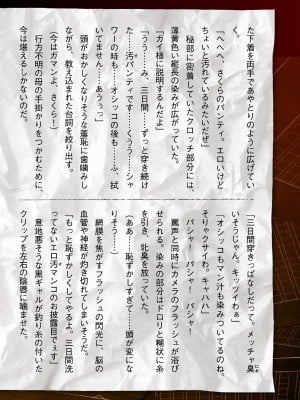 た下着を両手であやとりのように広げてい
く。
「へへへ、さくらのパンティ。エロいけど
ちょいと汚れているみたいだぜ」
秘部に密着していたクロッチ部分には、
薄黄色い縦長の染みが広がっていた。
「ガイ様に説明するんだよ」
「うう……み、三日間……ずっと穿き続け
た……汚パンティです……くうう……シャ
ワーの時も……オシッコの後も……ふ、拭
いてません……あううっ」
頭がおかしくなりそうな羞恥に歯噛みし
ながら、教え込まれた台詞を絞り出す。
(今はガマンよ、さくら！)
行方不明の母の手掛かりをつかむために、
今は堪えるしかないのだ。
「三日間穿きっぱなしだって。メッチャ臭
いそうじゃん。キッツイわぁ」
「オシッコもマン汁も染みついてるのね。
そりゃクサイわ。キャハハ」
パシャー！　パシャー！　パシャ！
罵声と同時にカメラのフラッシュが浴び
せられる。染みの部分はドロリと糊状に糸
を引き、牝臭を放っていた。
(ああ……恥ずかしすぎて……頭が変にな
りそう……)
網膜を焦がすフラッシュの閃光に、脳の
血管や神経が灼き切れてしまいそうだ。
「もっと恥ずかしくしてやるよ。三日間洗
ってないエロ汚マンコのお披露目でぇす」
意地悪そうな黒ギャルが釣り糸の付いた
クリップを左右の陰唇に噛ませた。